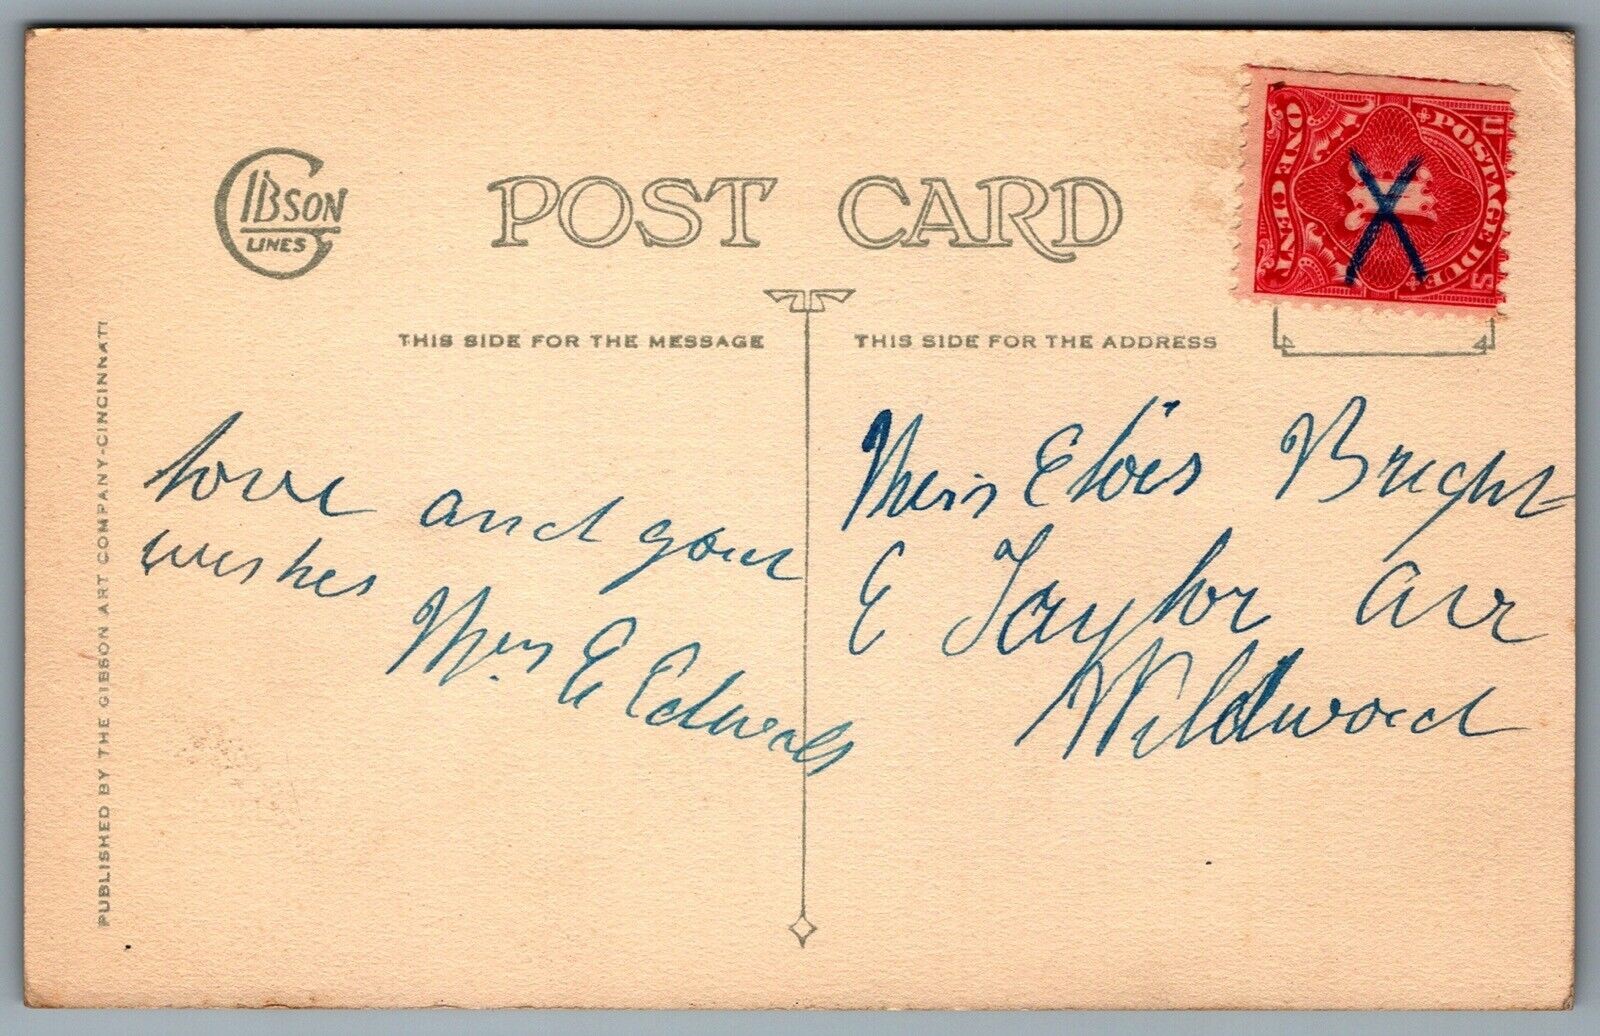 GIBSON
LINES
POST CARD
U S
POSTAGE DUE
ONE CENT
X
THIS SIDE FOR THE MESSAGE
THIS SIDE FOR THE ADDRESS
love and good
wishes
Mrs E Edwards
Miss Elois Bright
E Taylor ave
Wildwood
PUBLISHED BY THE GIBSON ART COMPANY-CINCINNATI